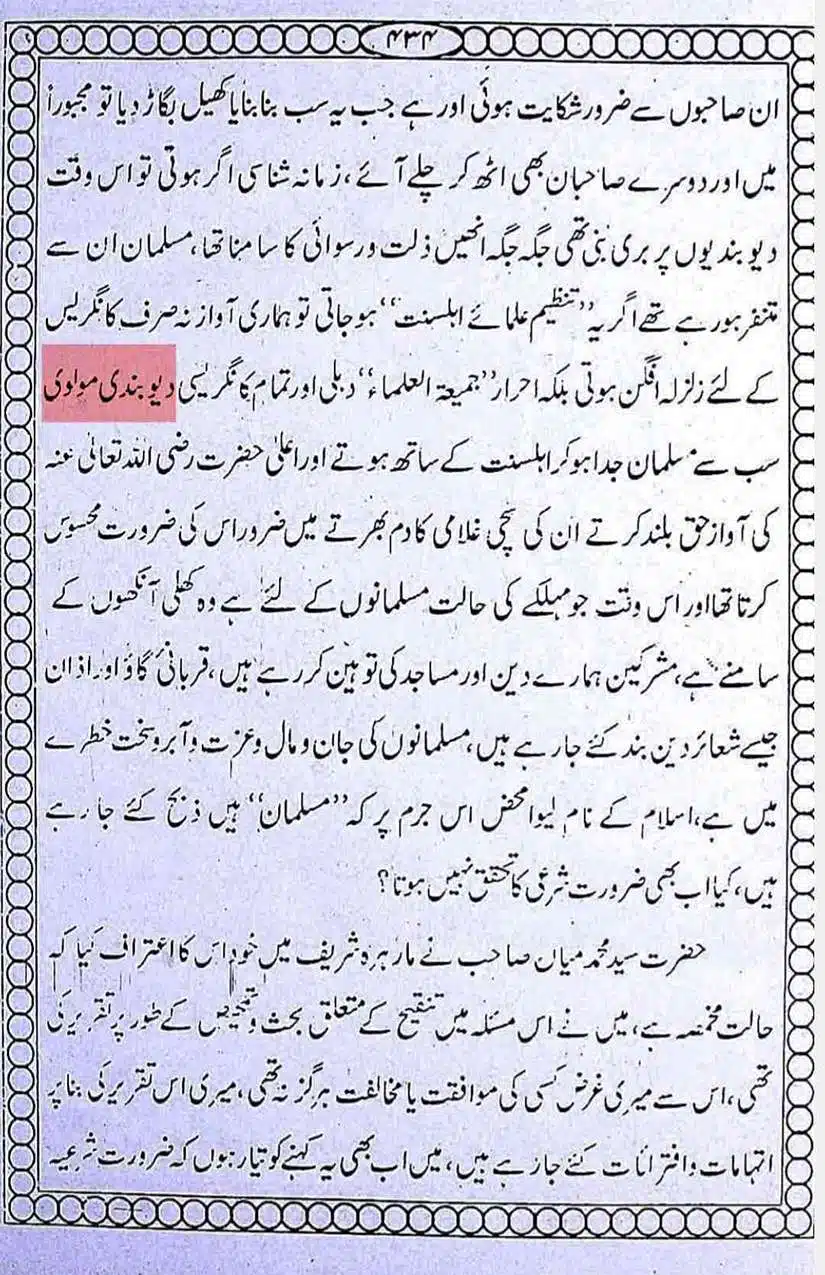 ۴۳۴
ان صاحبوں سے ضرور شکایت ہوئی اور ہے جب یہ سب بنا بنایا کھیل بگاڑ دیا تو مجبوراً
میں اور دوسرے صاحبان بھی اٹھ کر چلے آئے، زمانہ شناسی اگر ہوتی تو اس وقت
دیوبندیوں پر بری بنی تھی جگہ جگہ انھیں ذلت و رسوائی کا سامنا تھا، مسلمان ان سے
متنفر ہو رہے تھے اگر یہ ”تنظیم علمائے اہلسنت“ ہو جاتی تو ہماری آواز نہ صرف کانگریس
کے لئے زلزلہ افگن ہوتی بلکہ احرار ”جمیعۃ العلماء“ دہلی اور تمام کانگریسی دیوبندی مولوی
سب سے مسلمان جدا ہو کر اہلسنت کے ساتھ ہوتے اور اعلیٰ حضرت رضی اللہ تعالیٰ عنہ
کی آواز حق بلند کرتے ان کی سچی غلامی کا دم بھرتے میں ضرور اس کی ضرورت محسوس
کرتا تھا اور اس وقت جو مہلکے کی حالت مسلمانوں کے لئے ہے وہ کھلی آنکھوں کے
سامنے ہے، مشرکین ہمارے دین اور مساجد کی توہین کر رہے ہیں، قربانیٔ گاؤ اور اذان
جیسے شعائر دین بند کئے جا رہے ہیں، مسلمانوں کی جان و مال و عزت و آبرو سخت خطرے
میں ہے، اسلام کے نام لیوا محض اس جرم پر کہ ”مسلمان“ ہیں ذبح کئے جا رہے
ہیں، کیا اب بھی ضرورت شرعی کا تحقق نہیں ہوتا؟
حضرت سید محمد میاں صاحب نے مارہرہ شریف میں خود اس کا اعتراف کیا کہ
حالت مخمصہ ہے، میں نے اس مسئلہ میں تنقیح کے متعلق بحث و تمحیص کے طور پر تقریر کی
تھی، اس سے میری غرض کسی کی موافقت یا مخالفت ہرگز نہ تھی، میری اس تقریر کی بنا پر
اتہامات و افترائات کئے جا رہے ہیں، میں اب بھی یہ کہنے کو تیار ہوں کہ ضرورت شرعیہ